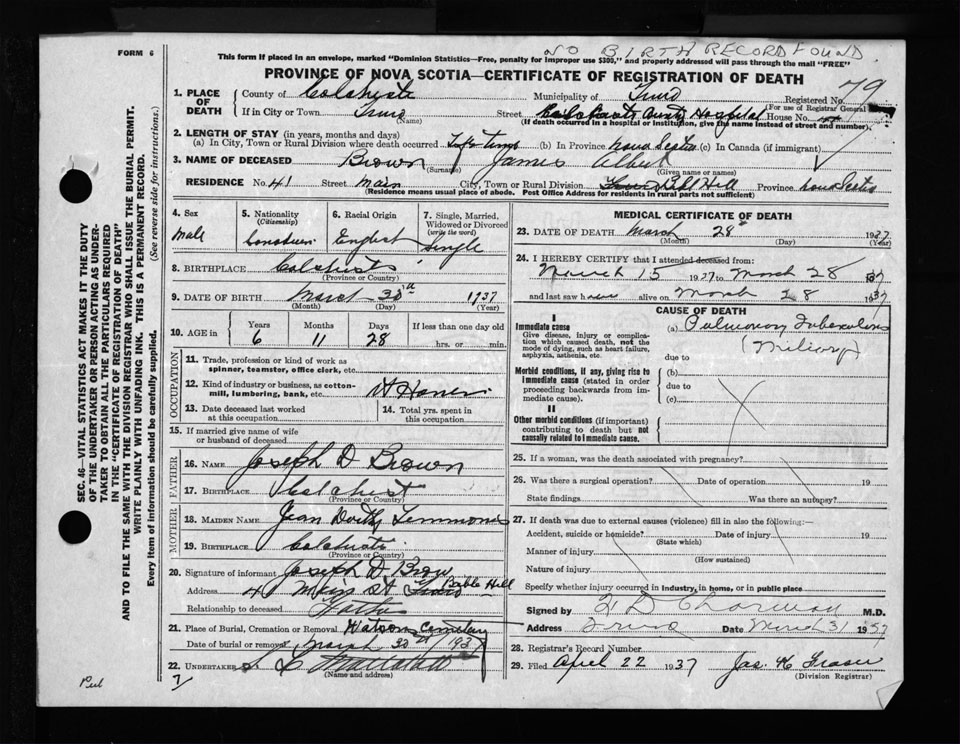 FORM 6
NO BIRTH RECORD FOUND
This form if placed in an envelope, marked "Dominion Statistics—Free, penalty for improper use $300," and properly addressed will pass through the mail "FREE"
PROVINCE OF NOVA SCOTIA—CERTIFICATE OF REGISTRATION OF DEATH
79
1. PLACE OF DEATH
County of Colcheste Municipality of Truro Registered No.
(For use of Registrar General)
If in City or Town Truro (Name) Street Hospital House No.
(If death occurred in a hospital or institution, give the name instead of street and number)
2. LENGTH OF STAY (in years, months and days)
(a) In City, Town or Rural Division where death occurred (b) In Province Nova Scotia (c) In Canada (if immigrant)
3. NAME OF DECEASED Brown James Albert
(Surname) (Given name or names)
RESIDENCE No. 41 Street Main City, Town or Rural Division Bible Hill Province Nova Scotia
(Residence means usual place of abode. Post Office Address for residents in rural parts not sufficient)
4. Sex
Male
5. Nationality
(Citizenship)
6. Racial Origin
English
7. Single, Married, Widowed or Divorced
(write the word)
Single
8. BIRTHPLACE
(Province or Country)
9. DATE OF BIRTH March 30th 1937
(Month) (Day) (Year)
10. AGE in
Years Months Days If less than one day old
6 11 28 hrs. or min.
OCCUPATION
11. Trade, profession or kind of work as spinner, teamster, office clerk, etc.
12. Kind of industry or business, as cotton-mill, lumbering, bank, etc.
13. Date deceased last worked at this occupation
14. Total yrs. spent in this occupation
15. If married give name of wife or husband of deceased
FATHER
16. NAME Joseph D Brown
17. BIRTHPLACE Colchest
(Province or Country)
MOTHER
18. MAIDEN NAME Jean
19. BIRTHPLACE
(Province or Country)
20. Signature of informant Joseph D Brow
Address 41 Main St Truro Bible Hill
Relationship to deceased Father
21. Place of Burial, Cremation or Removal Watson Cemetery
Date of burial or removal March 1937
22. UNDERTAKER
(Name and address)
MEDICAL CERTIFICATE OF DEATH
23. DATE OF DEATH March 28th 1937
(Month) (Day) (Year)
24. I HEREBY CERTIFY that I attended deceased from:
March 15 1937 to March 28 1937
and last saw h alive on March 28 1937
CAUSE OF DEATH
I
Immediate cause
Give disease, injury or complication which caused death, not the mode of dying, such as heart failure, asphyxia, asthenia, etc.
(a) Pulmonary Tuberculosis
(Miliary)
due to
Morbid conditions, if any, giving rise to immediate cause (stated in order proceeding backwards from immediate cause).
(b)
due to
(c)
II
Other morbid conditions (if important) contributing to death but not causally related to immediate cause.
25. If a woman, was the death associated with pregnancy?
26. Was there a surgical operation? Date of operation 19
State findings Was there an autopsy?
27. If death was due to external causes (violence) fill in also the following:—
Accident, suicide or homicide? Date of injury 19
(State which)
Manner of injury
(How sustained)
Nature of injury
Specify whether injury occurred in industry, in home, or in public place
Signed by M.D.
Address Truro Date March 31 1937
28. Registrar's Record Number
29. Filed April 22 1937 Jas. H Fraser
(Division Registrar)
SEC. 46—VITAL STATISTICS ACT MAKES IT THE DUTY
OF THE UNDERTAKER OR PERSON ACTING AS UNDER-
TAKER TO OBTAIN ALL THE PARTICULARS REQUIRED
IN THE "CERTIFICATE OF REGISTRATION OF DEATH"
AND TO FILE THE SAME WITH THE DIVISION REGISTRAR WHO SHALL ISSUE THE BURIAL PERMIT.
WRITE PLAINLY WITH UNFADING INK. THIS IS A PERMANENT RECORD.
Every item of information should be carefully supplied. (See reverse side for instructions.)